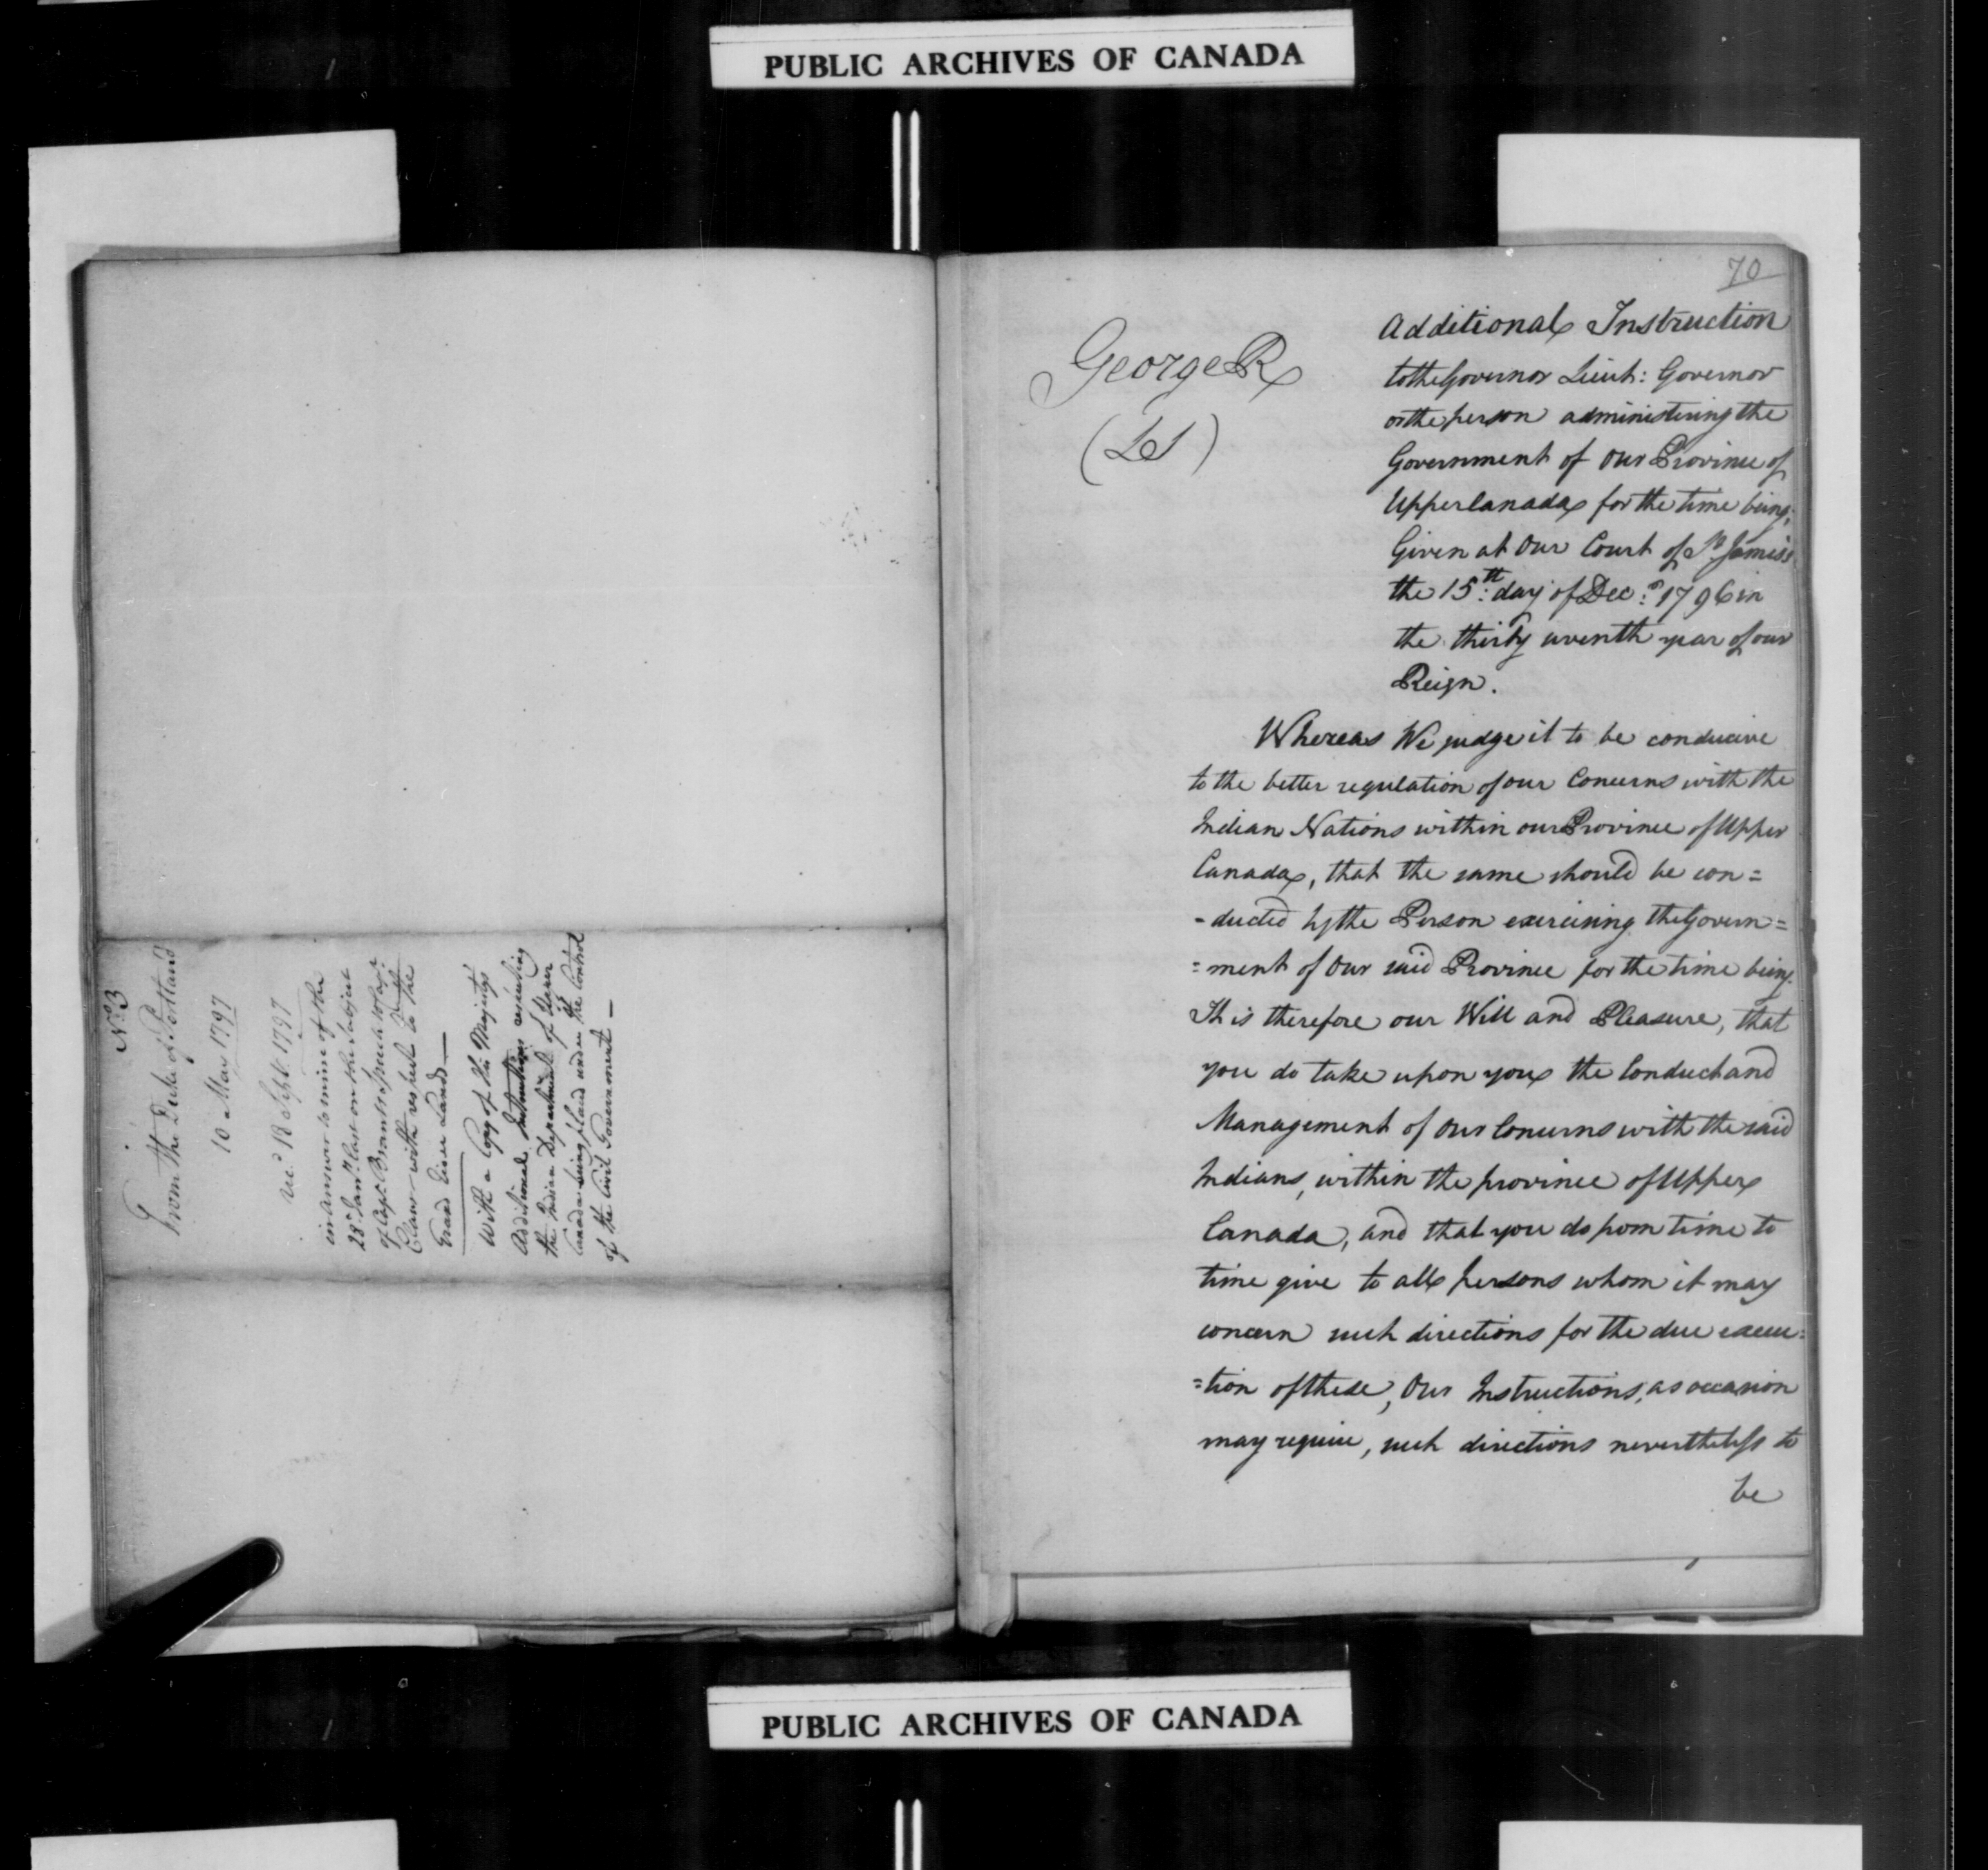 PUBLIC ARCHIVES OF CANADA
Nº 3
From the Duke of Portland
10 May 1797
rec.d 18 Sept. 1797
in answer to mine of the
28.th Jan.y last on the subject
of Cap.t Brant's speech to
Claus — with respect to the
Grand River Lands —
With a Copy of His Majesty's
Additional Instructions respecting
the Indian Department of Upper
Canada being placed under the Control
of the Civil Government —
70
George R
(LS)
Additional Instruction
to the Governor Lieut: Governor
or the person administering the
Government of Our Province of
Upper Canada for the time being;
Given at Our Court of St James's
the 15th: day of Dec:r 1796 in
the thirty seventh year of our
Reign.
Whereas We judge it to be conducive
to the better regulation of our Concerns with the
Indian Nations within our Province of Upper
Canada, that the same should be con=
-ducted by the Person exercising the Govern=
=ment of Our said Province for the time being.
It is therefore our Will and Pleasure, that
you do take upon you the Conduct and
Management of Our Concerns with the said
Indians, within the province of Upper
Canada, and that you do from time to
time give to all persons whom it may
concern such directions for the due execu=
=tion of these, Our Instructions, as occasion
may require, such directions nevertheless to
be
PUBLIC ARCHIVES OF CANADA